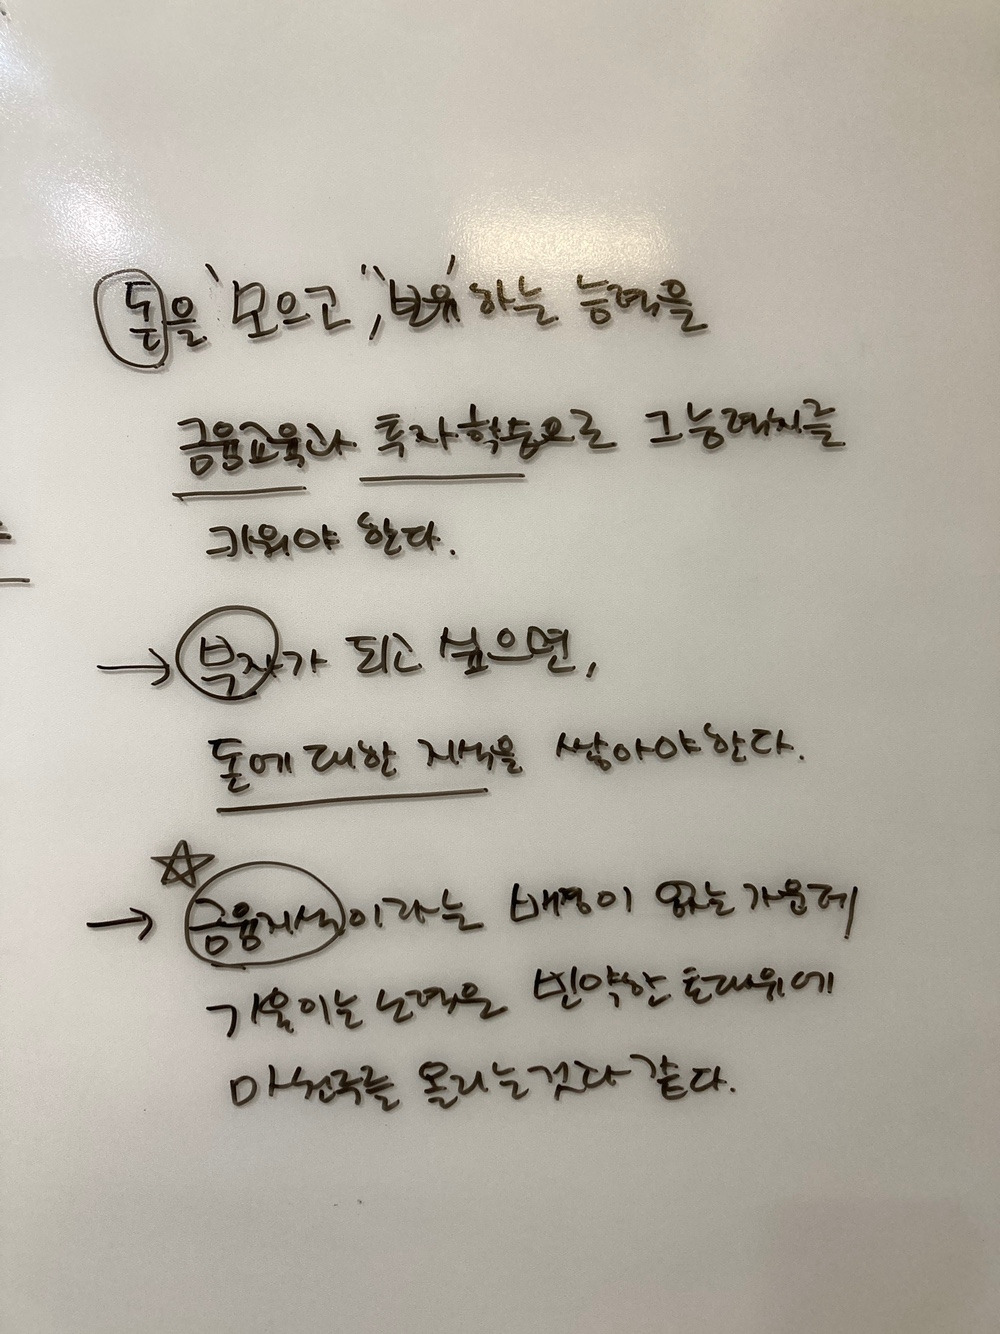 돈을 '모으고', '보유'하는 능력을
금융교육과 투자학습으로 그 능력치를
키워야 한다.
→ 부자가 되고 싶으면,
돈에 대한 지식을 쌓아야 한다.
☆
→ 금융지식이라는 배경이 없는 가운데
기울이는 노력은 빈약한 토대위에
마천루를 올리는것과 같다.